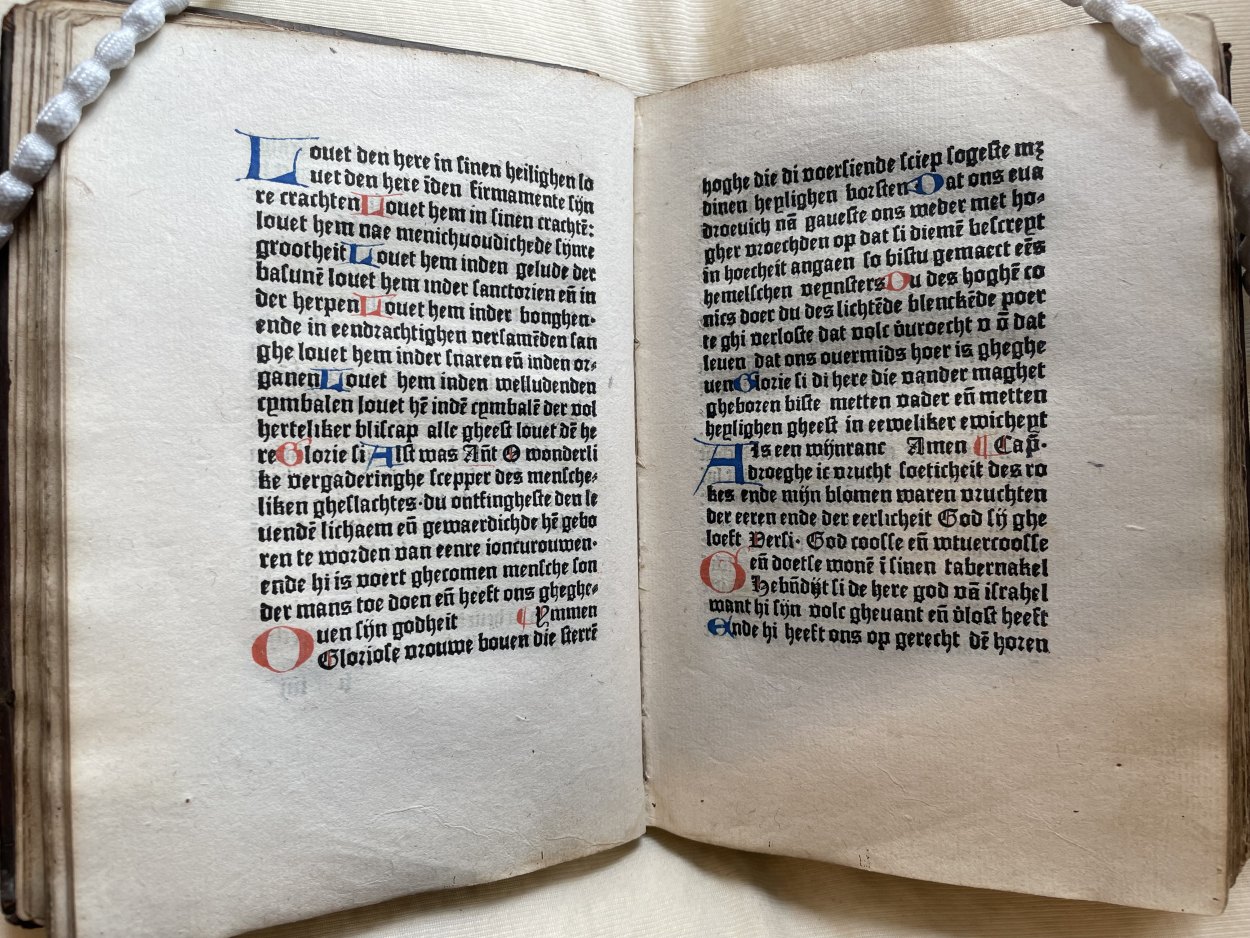 Louet den here in sinen heilighen lo
uet den here īden firmamente sijn
re crachten Louet hem in sinen crachtē:
louet hem nae menichuoudichede sijnre
grootheit Louet hem inden gelude der
basunē louet hem inder sanctorien eñ in
der herpen Louet hem inder bonghen·
ende in eendrachtighen versamēden san
ghe louet hem inder snaren eñ inden or⸗
ganen Louet hem inden welludenden
cymbalen louet hē indē cymbalē der vol
herteliker bliscap alle gheest louet dē he
re Glorie si Alst was Añt O wonderli
ke vergaderinghe scepper des mensche⸗
liken gheslachtes·du ontfingheste den le
uendē lichaem eñ gewaerdichde hē gebo
ren te worden van eenre ioncurouwen·
ende hi is voert ghecomen mensche son
der mans toe doen eñ heeft ons gheghe⸗
uen sijn godheit ¶ Ymmen
O Gloriose vrouwe bouen die sterrē
hoghe die di voersiende sciep sogeste mʒ
dinen heylighen borsten Dat ons eua
droeuich nā gaueste ons weder met ho⸗
gher vroechden op dat si diemē bescreyt
in hoecheit angaen so bistu gemaect eēs
hemelschen veynsters Du des hoghē co
nics doer du des lichtēde blenckēde poer
te ghi verloste dat volc v̄uroecht v ā dat
leuen dat ons ouermids hoer is gheghe
uen Glorie si di here die vander maghet
gheboren biste metten vader eñ metten
heylighen gheest in eeweliker ewicheyt
Als een wijnranc Amen ¶ Cap̄·
Adroeghe ic vrucht soeticheit des ro
kes ende mijn blomen waren vruchten
der eeren ende der eerlicheit God sij ghe
loeft Versi· God coosse eñ wtuercoosse
eñ doetse wonē ī sinen tabernakel
Ghebn̄dijt si de here god vā israhel
want hi sijn volc gheuant eñ v̄lost heeft
Ende hi heeft ons op gerecht dē horen